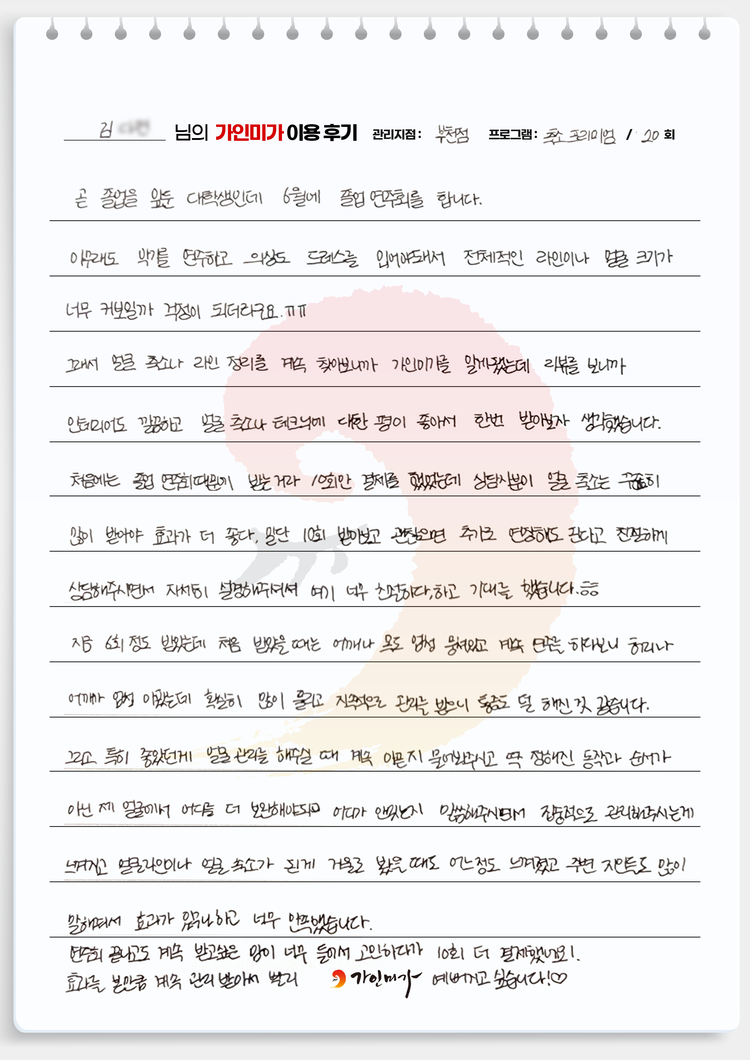 김 님의 가인미가 이용 후기 관리지점 : 부천점 프로그램 : 축소 프리미엄 / 20 회
곧 졸업을 앞둔 대학생인데 6월에 졸업 연주회를 합니다.
아무래도 악기를 연주하고 의상도 드레스를 입어야돼서 전체적인 라인이나 얼굴 크기가
너무 커보일까 걱정이 되더라구요.ㅠㅠ
그래서 얼굴 축소나 라인 정리를 계속 찾아보니까 가인미가를 알게됐는데 리뷰를 보니까
인테리어도 깔끔하고 얼굴 축소나 테크닉에 대한 평이 좋아서 한번 받아보자 생각했습니다.
처음에는 졸업 연주회때문에 받는거라 10회만 결제를 했었는데 상담사분이 얼굴 축소는 꾸준히
많이 받아야 효과가 더 좋다, 일단 10회 받아보고 괜찮으면 추가로 연장해도 된다고 친절하게
상담해주시면서 자세히 설명해주셔서 여기 너무 친절하다,하고 기대를 했습니다.ㅎㅎ
지금 6회 정도 받았는데 처음 받았을 때는 어깨나 목도 엄청 뭉쳐있고 계속 연주를 하다보니 허리나
어깨가 엄청 아팠는데 확실히 많이 풀리고 지속적으로 관리를 받으니 통증도 덜 해진 것 같습니다.
그리고 특히 좋았던게 얼굴 관리를 해주실 때 계속 아픈지 물어봐주시고 딱 정해진 동작과 순서가
아닌 제 얼굴에서 어디를 더 보완해야되고 어디가 안좋은지 말씀해주시면서 집중적으로 관리해주시는게
느껴지고 얼굴라인이나 얼굴 축소가 된게 거울로 봤을 때도 어느정도 느껴졌고 주변 지인들도 많이
말해줘서 효과가 있구나하고 너무 만족했습니다.
연주회 끝나고도 계속 받고싶은 맘이 너무 들어서 고민하다가 10회 더 결제했네요!.
효과를 본만큼 계속 관리 받아서 빨리 가인미가 예뻐지고 싶습니다!♡